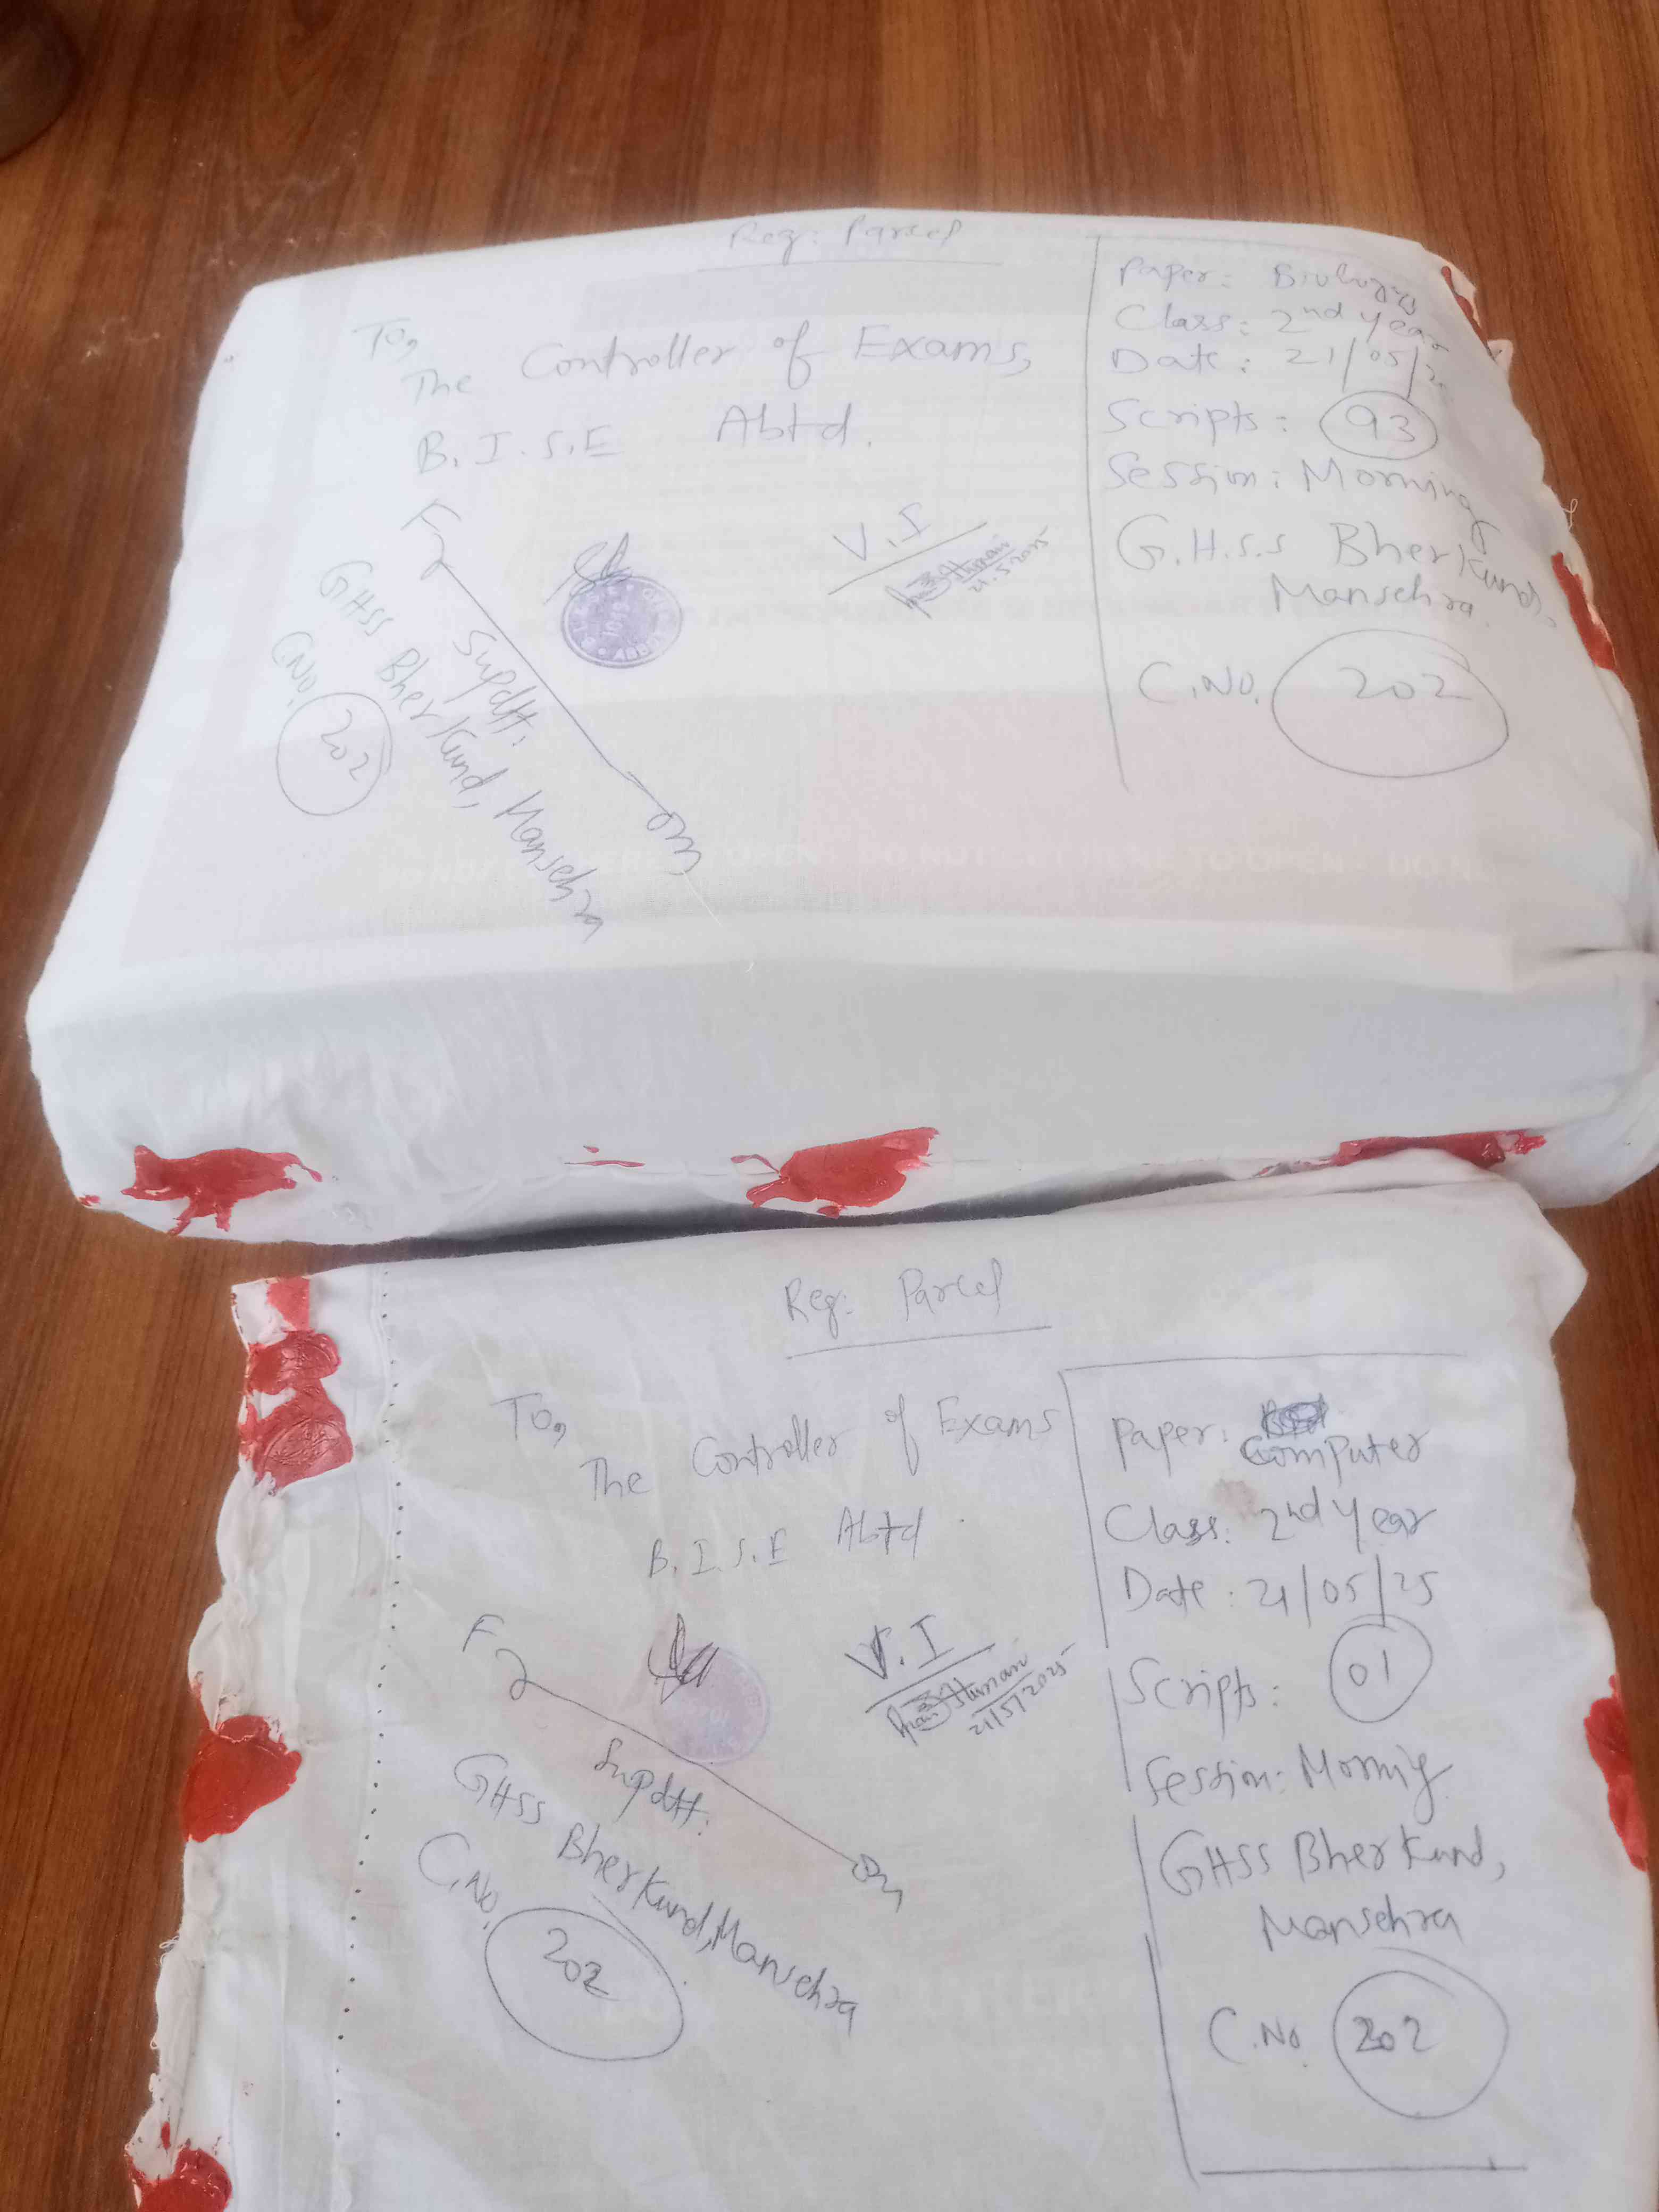 Reg: Parcel
To,
The Controller of Exams,
B.I.S.E Abtd.
V.I
21.5.2025
From
Supdtt:
GHSS BherKund, Mansehra
C.No. 202
Paper: Biology
Class: 2nd year
Date: 21/05/2
Scripts: 93
Session: Morning
G.H.S.S BherKund,
Mansehra.
C.No. 202
OPEN DO NOT TO OPEN DO
Reg: Parcel
To,
The Controller of Exams
B.I.S.E Abtd.
V.I
21/5/2025
From
Supdtt:
GHSS BherKund, Mansehra
C.No. 202
Paper: Computer
Class: 2nd year
Date: 21/05/25
Scripts: 01
Session: Morning
GHSS BherKund,
Mansehra
C.No. 202